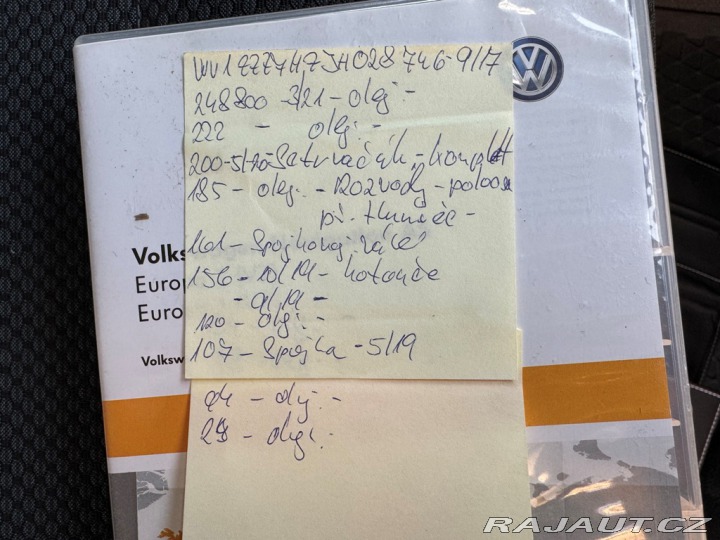 WV1ZZZ7HZJH028746-9/17
248800 3/21-olej-
222 - olej-
200-5/20-Setrvačník-komplet
185-olej-Rozvody-poloosa
př. tlumič-
161-Spojkový válec
156-10/19-kotouče
-9/19-
120-olej-
107-Spojka-5/19
94-olej-
28-olej-
Volksw
Europ
Euro
Volksw
RAJAUT.CZ